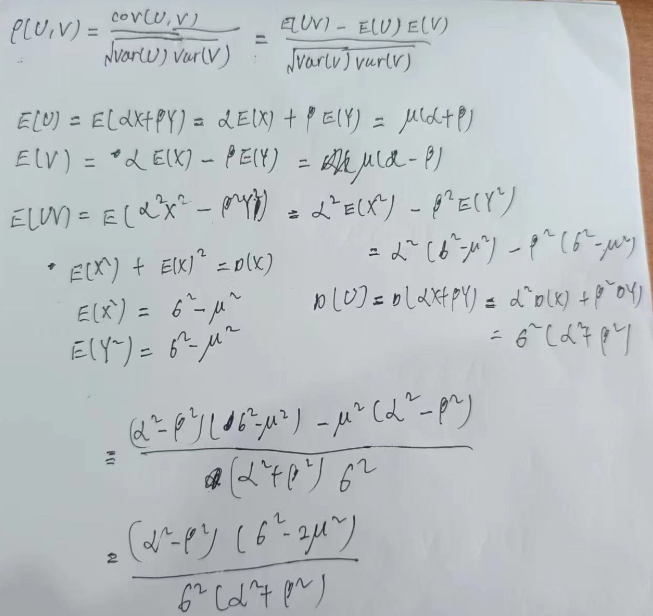 ρ(U,V) = cov(U,V) / √var(U) var(V) = E(UV) - E(U)E(V) / √var(U) var(V)
E(U) = E(αX+βY) = αE(X) + βE(Y) = μ(α+β)
E(V) = αE(X) - βE(Y) = μ(α-β)
E(UV) = E(α²X² - β²Y²) = α²E(X²) - β²E(Y²)
= α²(6²-μ²) - β²(6²-μ²)
E(X²) + E(X)² = D(X)
E(X²) = 6²-μ²
E(Y²) = 6²-μ²
D(U) = D(αX+βY) = α²D(X) + β²DY)
= 6²(α²+β²)
= (α²-β²)(6²-μ²) - μ²(α²-β²) / (α²+β²) 6²
= (α²-β²) (6²-2μ²) / 6²(α²+β²)